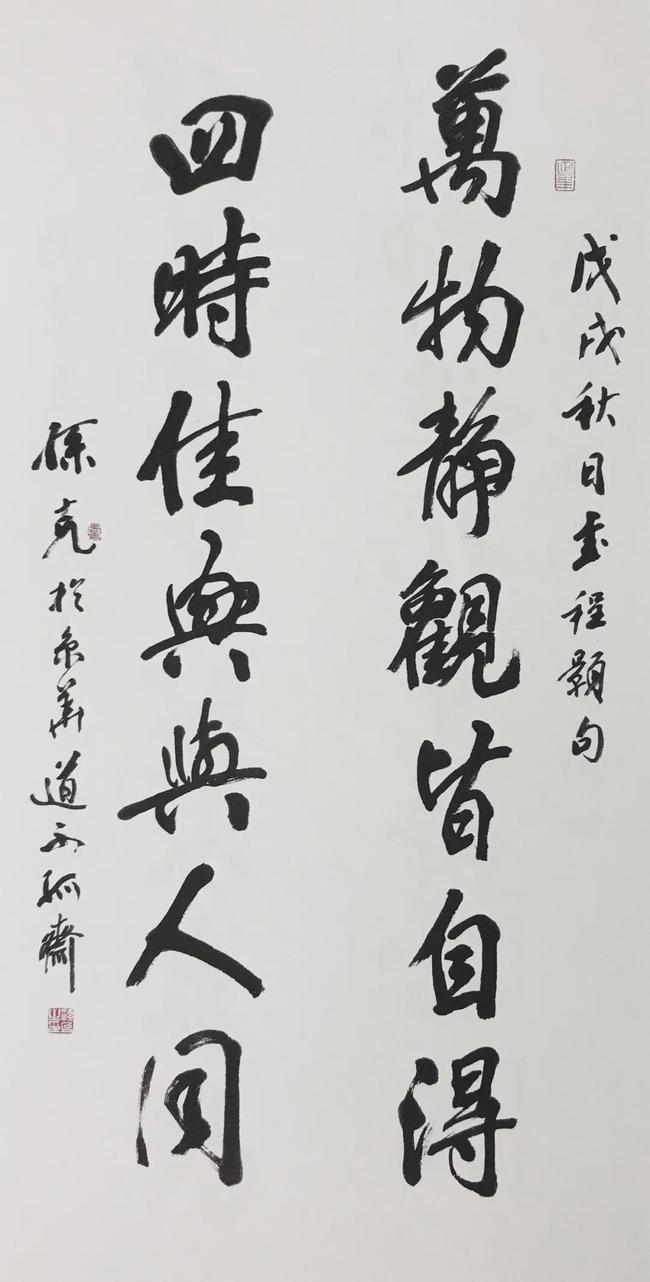 戊戌秋日書程顥句
萬物静觀皆自得
四時佳興與人同
徐克於京華道不孤齋